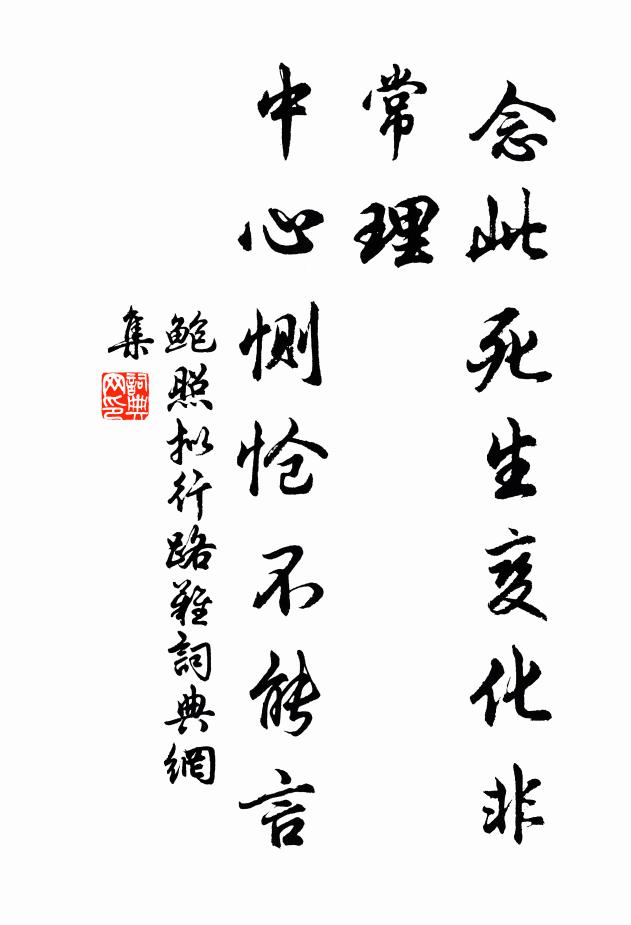 念此死生变化非
常理
中心恻怆不能言
鲍照拟行路难詞典網
集
詞典
网印